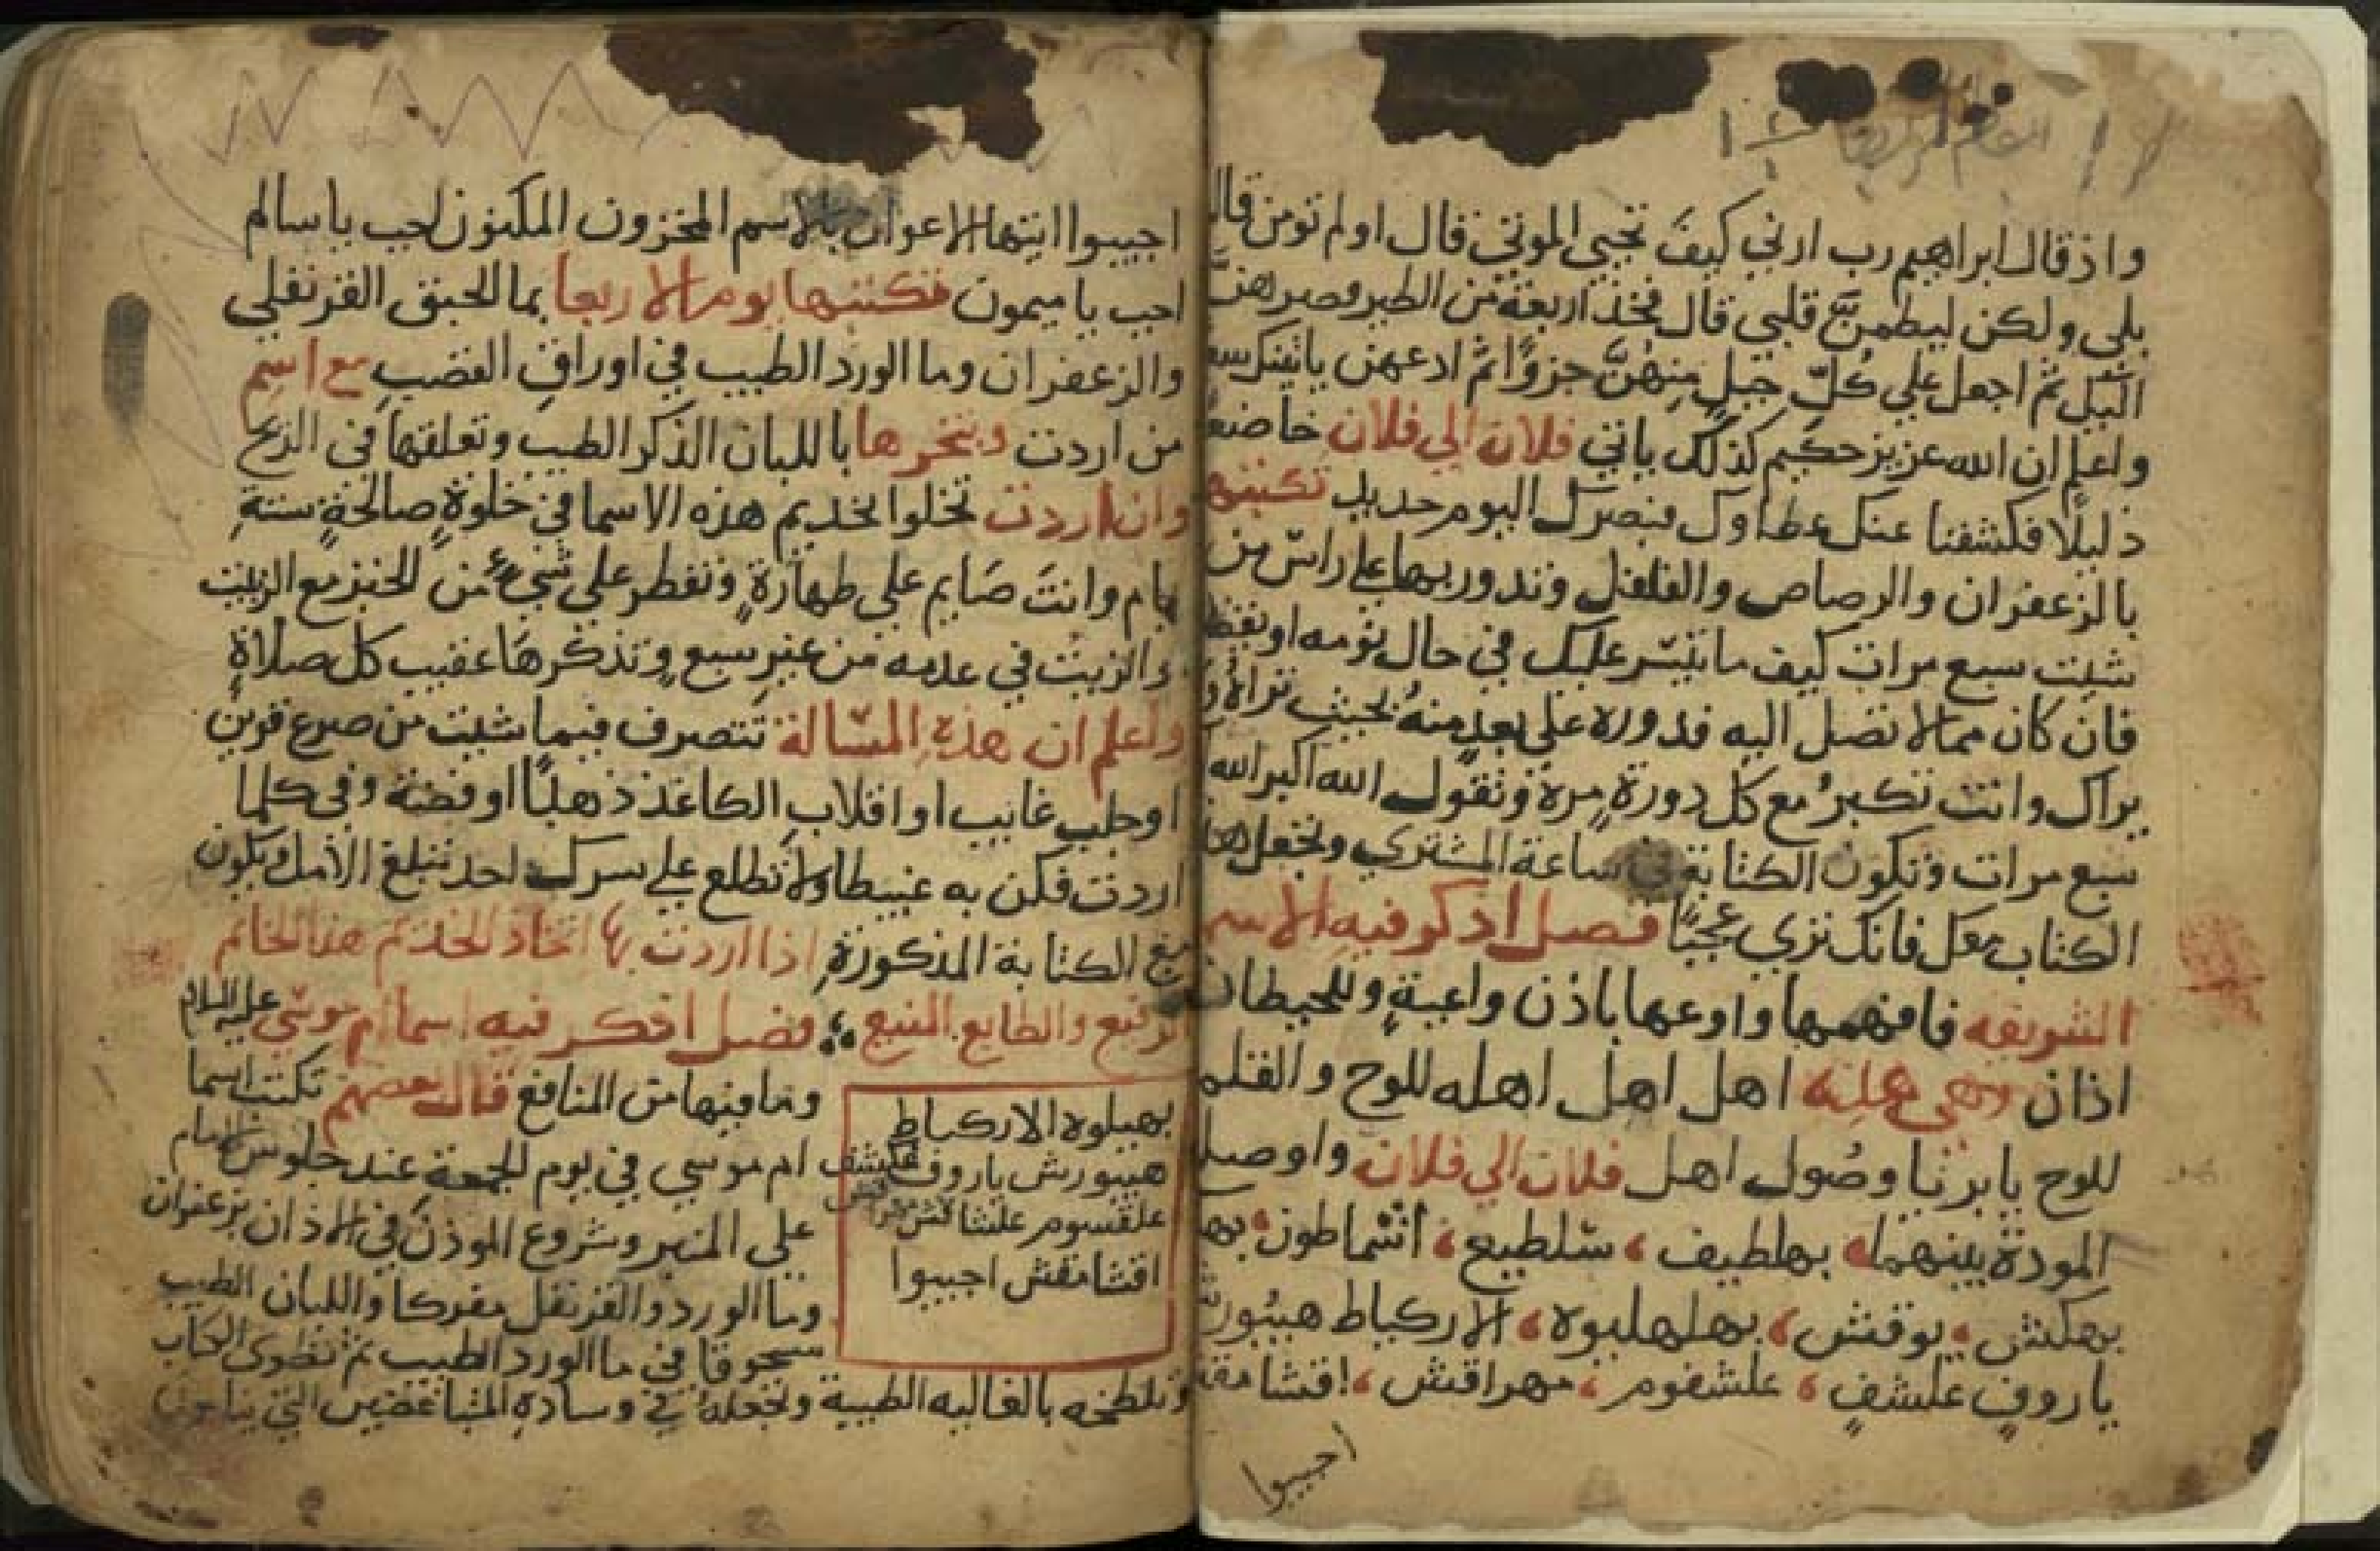 واذ قال ابراهيم رب ارني كيفَ تحيي الموتي قال اولم تومن قال
بلي ولكن ليطمىنَّ قلبي قال فخذ اربعة من الطير فصرهنَّ
اليك ثم اجعل علي كُلّ جبلٍ منهُنَّ جزوًا ثم ادعهن ياتينك سع
واعلم ان الله عزيز حكيم كذلك ياتي فلان الي فلان خاضعًا
ذليلًا فكشفنا عنك غطاوك فبصرك اليوم حديد تكتبها
بالزعفران والرصاص والفلفل وتدور بها علي راس من
شيت سبع مرات كيف ما تيسّر عليك في حال نومه او يقظ
فان كان ممالا تصل اليه فدوره علي بعدٍ منهُ بحيث تراهُ و
يراك وانت تكبرُ مع كل دورةٍ مرة وتقول الله اكبر الله
سبع مرات وتكون الكتابة في ساعة المشتري وتجعل هذا
الكتاب معك فانك تري عجبًا فصل اذكر فيه الاسم
الشريفه فافهمها واوعها باذن واعيةٍ وللحيطان
اذان وهي هذه اهل اهل اهله للوح والقلم
للوح يا برنا وصُول اهل فلان الي فلان واوصل
المودة بينهما بهلطيف ، سلطيع ، اشماطون ، بهـ
بهكش ، يوقش ، بهلهليوه ، الاركياط هيبُورش
ياروفٍ غلشفٍ ، علشفوم ، مهراقش ، اقشامقش
اجيبوا
اجيبوا ايتها الاعوان بالاسم المخزون المكنون اجب ياسالم
اجب ياميمون فكتبها يوم الاربعا بما الحبق القرنفلي
والزعفران وما الورد الطيب في اوراق القصب مع اسم
من اردت وبخرها باللبان الذكر الطيب وتعلقها في الريح
وان اردت تخلوا بخديم هذه الاسما في خلوةٍ صالحةٍ ستة
ايام وانتَ صَايم علي طهارةٍ وتفطر علي شيءٍ من الخبز مع الزبيت
والزيت في عدمه من غير سبع وتذكرها عقيب كل صلاةٍ
واعلم ان هذه المسالة تتصرف فيما شيت من صرع قرين
او جلب غايب او اقلاب الكاغد ذهبًا او فضة وفي كلما
اردت فكن به غبيطا ولا تطلع علي سرك احد تبلغ الامل ويكون
مع الكتابة المذكورة اذا اردت بها اتخاذ الخديم هذا الخاتم
الرفيع والطابع المنيع فصل اذكر فيه اسما ام موسي عليه السلام
وما فيها من المنافع قال بعضهم تكتب اسما
ام موسي في يوم الجمعة عند جلوس الامام
علي المنبر وشروع الموذن في الاذان بزعفران
وما الورد والقرنفل مفركا واللبان الطيب
مسحوقا في ما الورد الطيب ثم تطوي الكتاب
وتلطخه بالغاليه الطيبة وتجعله في وسادةِ المتباغضين التي يناموا
بهيلوه الاركياط
هيبورش ياروف غليشف
علقسوم علشاقش
اقشامقش اجيبوا